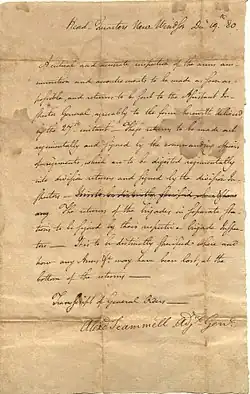 Head Quarters New Windsor Decr 19th 80
A critical and minute inspection of the arms am
munition and accoutrements to be made as soon as
possible, and returns to be sent to the Adjutant In
spector General agreeably to the form herewith delivered
by the 27th instant — These returns to be made out
regimentally and signed by the commanding officers
of regiments which are to be digested regimentally
into division returns and signed by the division In
spectors —
any The returns of the brigades in separate sta
tions to be signed by their respective brigade Inspec
tors — It is to be distinctly specified where and
how any Arms &c. may have been lost, at the
bottom of the returns —
Transcript of General Orders —
Alexr Scammell Adjt Genl.